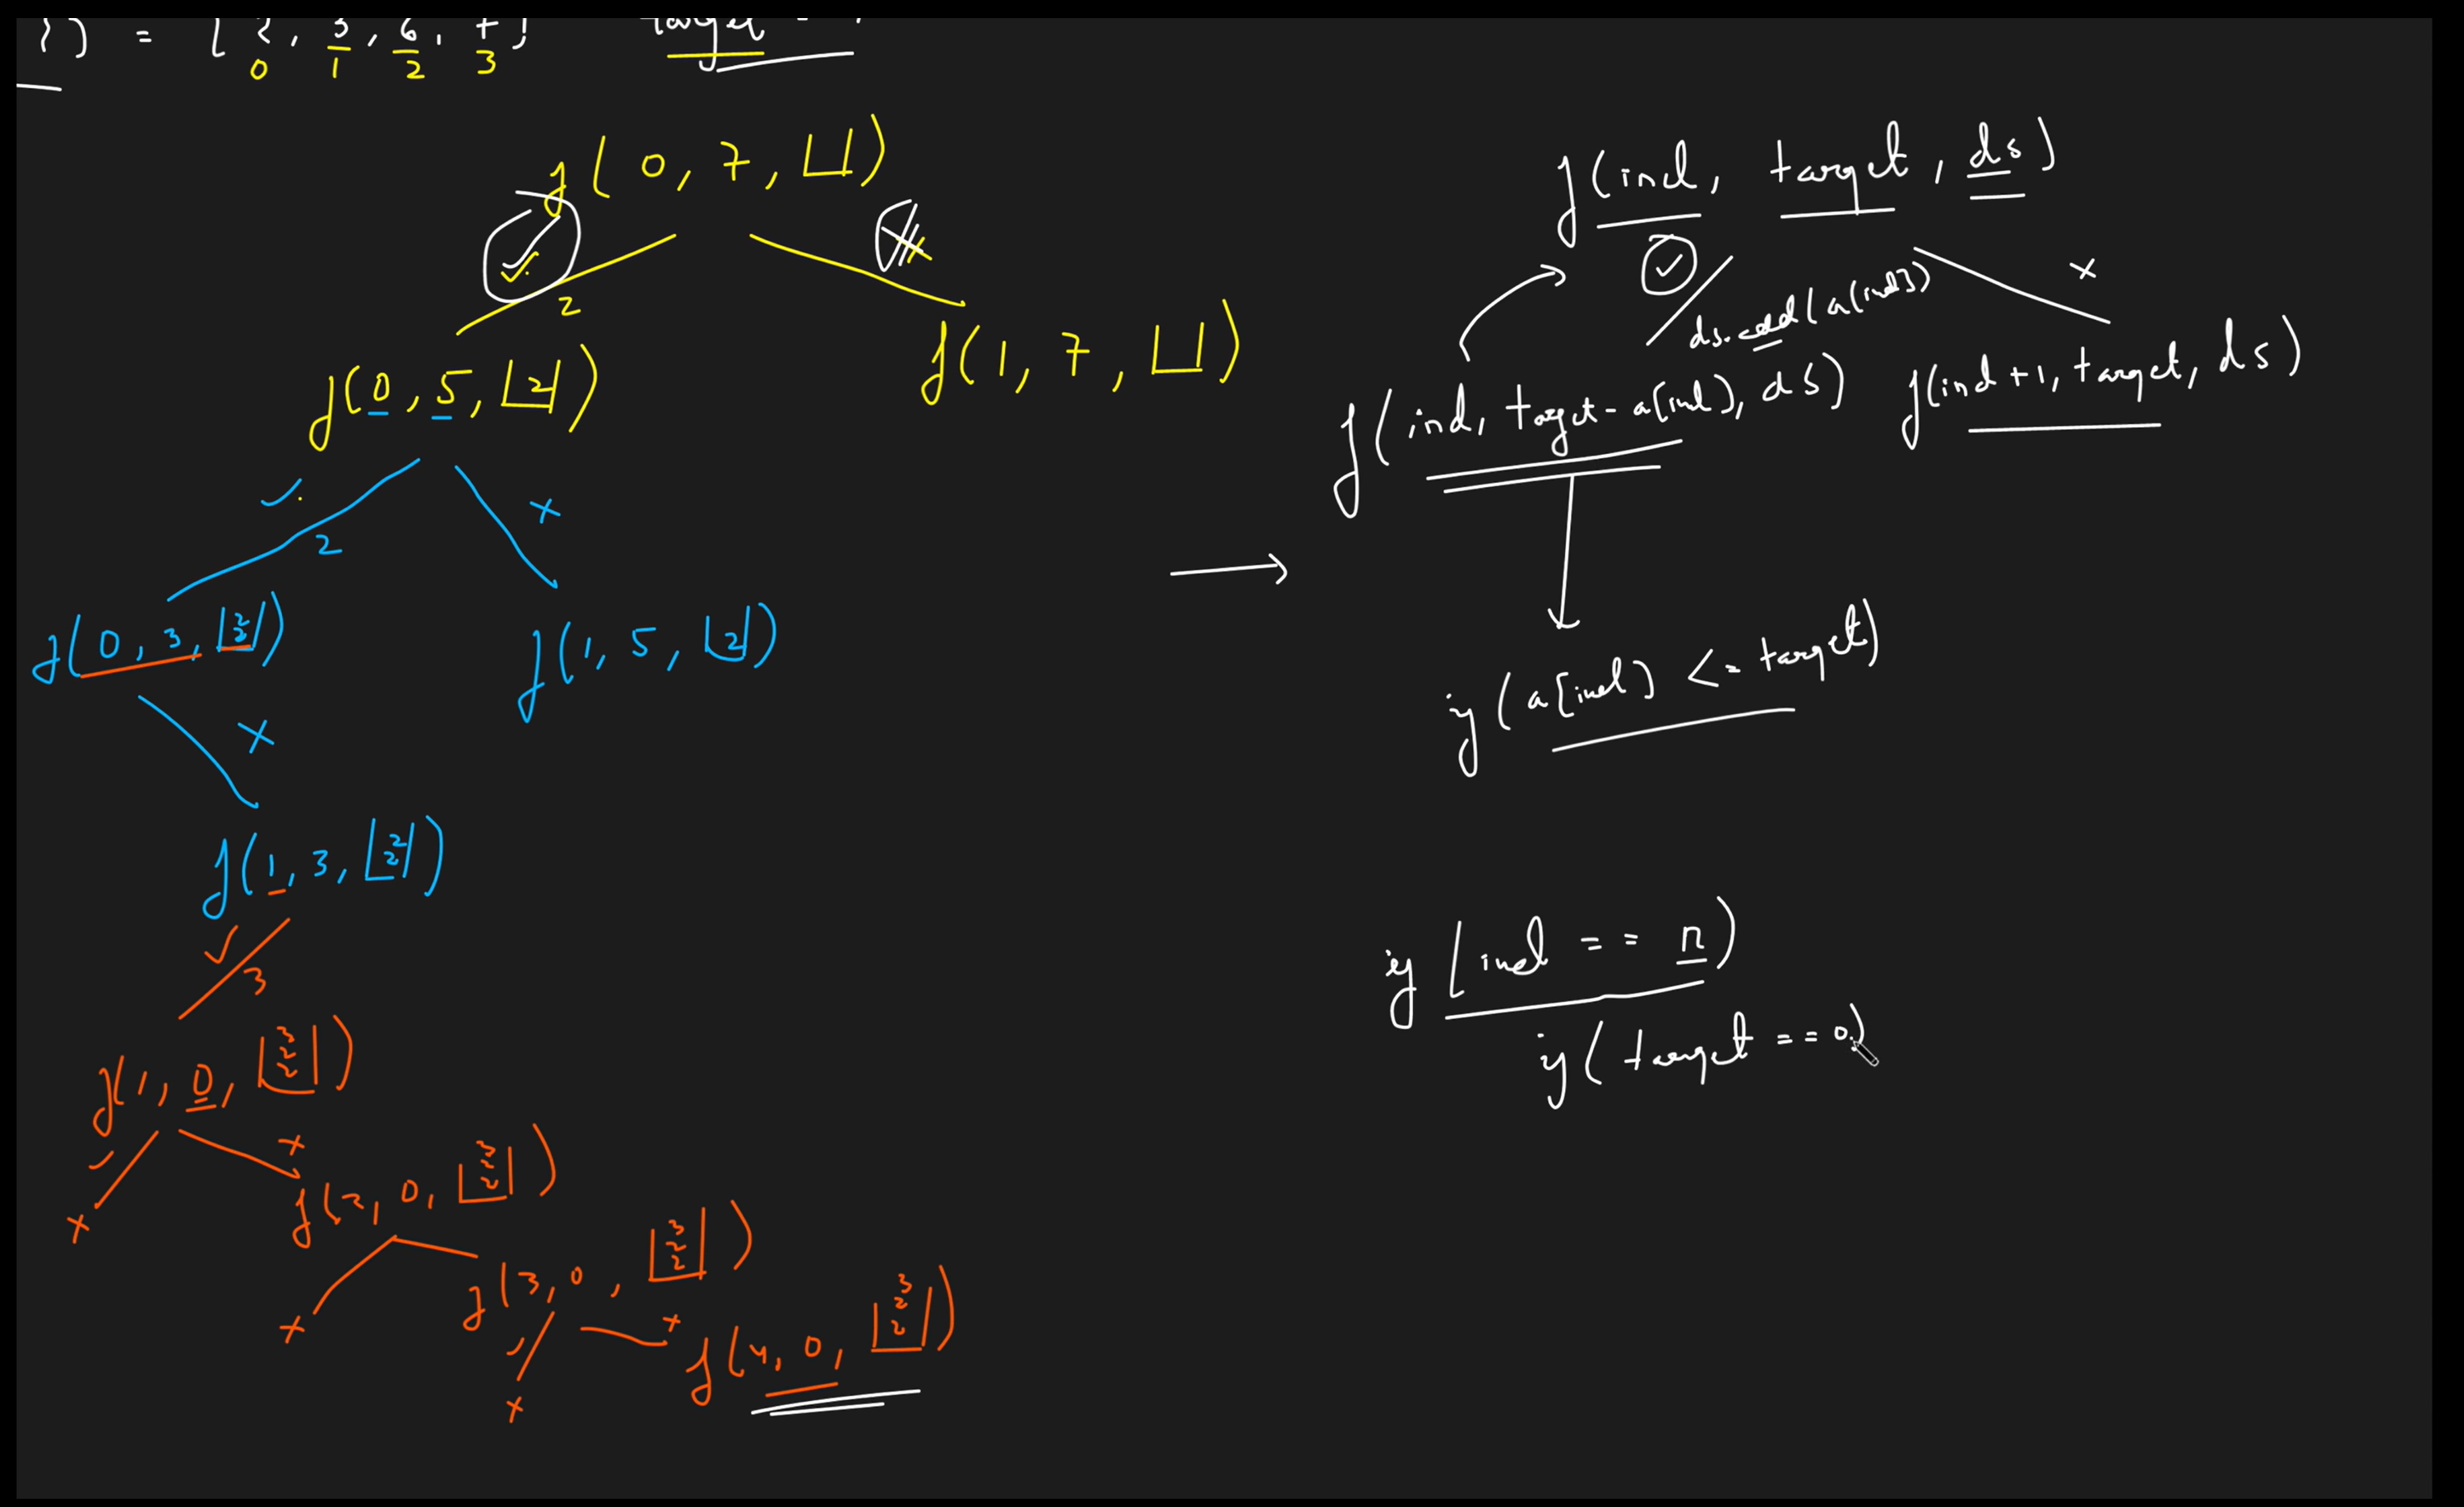 = [2, 3, 6, 7] target =
0 1 2 3
f(0, 7, )
2
f(0, 5, 2)
f(1, 7, )
2
f(0, 3, 2 2)
f(1, 5, 2)
f(1, 3, 2 2)
3
f(1, 0, 3 2 2)
f(2, 0, 3 2 2)
f(3, 0, 3 2 2)
f(4, 0, 3 2 2)
f(ind, target, ds)
ds.add(a[ind])
f(ind, target - a[ind], ds)
f(ind+1, target, ds)
if (a[ind] <= target)
if (ind == n)
if (target == 0)